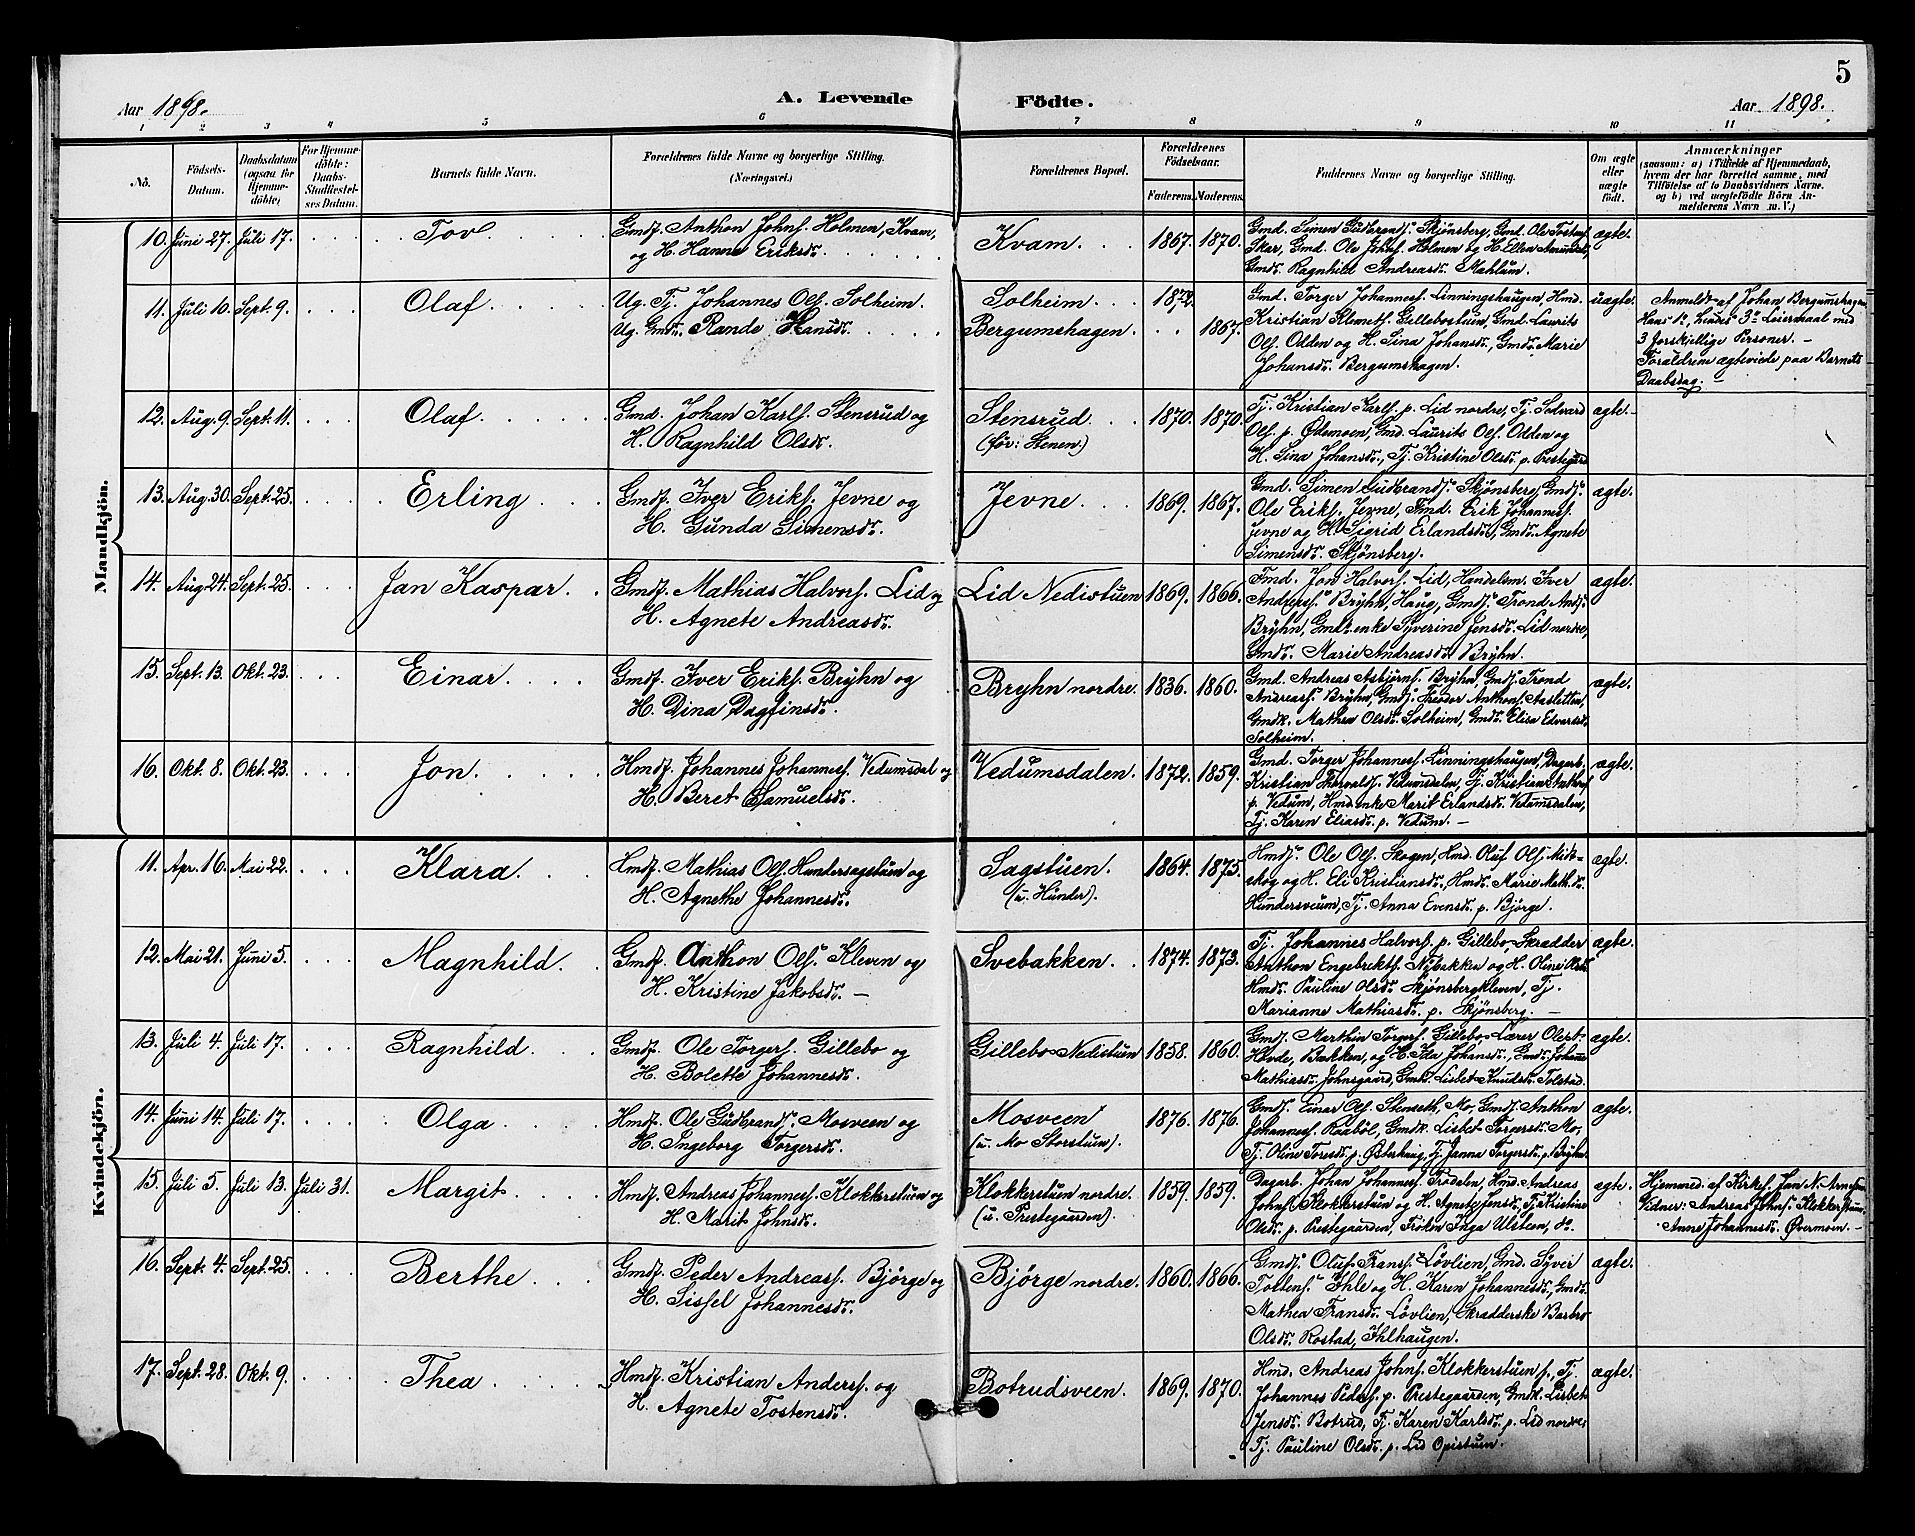 5
Aar 1898. A. Levende Födte. Aar 1898.
1 2 3 4 5 6 7 8 9 10 11
No. Födsels-Datum. Daabsdatum (ogsaa for Hjemmedöbte) For Hjemmedöbte: Daabs-Stadfæstelses Datum. Barnets fulde Navn. Forældrenes fulde Navne og borgerlige Stilling. (Næringsvei.) Forældrenes Bopæl. Forældrenes Födselsaar. Faderens. Moderens. Faddernes Navne og borgerlige Stilling. Om ægte eller uægte födt. Anmærkninger
(saasom: a) i Tilfælde af Hjemmedaab,
hvem der har forrettet samme, med
Tilföielse af to Daabsvidners Navne.
og b) ved uægtefödte Börn Anmelderens Navn m. V.)
Mandkjön.
10. Juni 27. Juli 17. Tov Gmdf. Anthon Johns. Holmen, Kvam,
og H. Hanna Eriksd.
Kvam 1867. 1870.
Gmd. Simen Gudbrands. Skjønsberg, Gmd. Ole Tostens.
Sker, Gmd. Ole Johns. Holmen og H. Ellen Amundsd.,
Gmds. Ragnhild Andreasd. Mahlum.
ægte.
11. Juli 10. Sept. 9. Olaf Ug. Tj. Johannes Ols. Solheim.
Ug. Gmds. Rande Hansd.
Solheim 1872.
Bergumshagen. 1867.
Gmd. Torger Johanness. Linningshaugen, Hmd.
Kristian Klemets. Gillebostuen, Gmd. Laurits
Ols. Odden og H. Sina Johansd., Gmds. Marie
Johansd. Bergumshagen.
uægte.
Anmeldt af Johan Bergumshagen
Hans 1ste, hendes 3die Leiermaal med
3 forskjellige Personer. —
Forældrene ægteviede paa Barnets
Daabsdag. —
12. Aug. 9. Sept. 11. Olaf Gmd. Johan Karls. Stensrud og
H. Ragnhild Olsd.
Stensrud
(föv: Stenen.)
1870. 1870.
Tj. Kristian Karls. p. Lid nordre, Tj. Sedvard
Ols. p. Ødemoen, Gmd. Laurits Ols. Odden og
H. Sina Johansd., Tj. Kristine Olsd. p. Prestegard
ægte.
13. Aug. 30. Sept. 25. Erling Gmdf. Iver Eriks. Jevne og
H. Gunda Simensd.
Jevne 1869. 1867.
Gmd. Simen Gudbrands. Skjønsberg, Gmds.
Ole Eriks. Jevne, Fmd. Erik Johanness.
Jevne og H. Sigrid Erlandsd., Gmds. Agnete
Simensd. Skjønsberg.
ægte.
14. Aug. 24. Sept. 25. Jan Kaspar. Gmdf. Mathias Halvors. Lid og
H. Agnete Andreasd.
Lid Nedistuen 1869. 1866.
Fmd. Jon Halvors. Lid, Handelsm. Iver
Anderss. Bryhn, Haug, Gmds. Trond Ands.
Bryhn, Gmds. enke Syverine Jensd. Lid nordre,
Gmds. Marie Andreasd. Bryhn.
ægte.
15. Sept. 13. Okt. 23. Einar Gmdf. Iver Eriks. Bryhn og
H. Dina Dagfinsd.
Bryhn nordre. 1836. 1860.
Gmd. Andreas Asbjørns. Bryhn, Gmds. Trond
Andreass. Bryhn, Gmds. Theodor Anthons. Aasletten,
Gmdk. Mathea Olsd. Solheim, Gmds. Elisa Edvardsd.
Solheim.
ægte.
16. Okt. 8. Okt. 23. Jon. Hmdf. Johannes Johanness. Vedumsdal og
H. Beret Samuelsd.
Vedumsdalen. 1872. 1859.
Gmd. Torger Johanness. Linningshaugen, Dagarb.
Kristian Thorvalds. Vedumsdalen, Tj. Kristian Anthons.
p. Vedum, Hmd. enke Marit Erlandsd. Vedumsdalen,
Tj. Karen Eliasd. p. Vedum. —
ægte.
Kvindekjön.
11. Apr. 16. Mai 22. Klara. Hmdf. Mathias Ols. Hundersagstuen og
H. Agnethe Johannesd.
Sagstuen.
(u. Hunder).
1864. 1875.
Hmds. Ole Ols. Skogen, Hmd. Oluf Ols. Midtskog og H. Eli Kristiansd., Hmds. Marie Math.d.
Hundersveum, Tj. Anna Evensd. p. Bjørge.
ægte.
12. Mai 21. Juni 5. Magnhild. Gmdf. Anthon Ols. Kleven og
H. Kristine Jakobsd. —
Svebakken. 1874. 1873.
Tj. Johannes Halvors. p. Gillebo, Skrædder
Anthon Engebrekts. Nybakken og H. Oline Olsd.
Hmds. Pauline Olsd. Skjønsbergkleven, Tj.
Marianne Mathiasd. p. Skjønsberg. —
ægte.
13. Juli 4. Juli 17. Ragnhild. Gmdf. Ole Torgers. Gillebo og
H. Bolette Johannesd.
Gillebo Nedistuen 1858. 1860.
Gmd. Marthin Torgers. Gillebo, Lærer Ole
Hovde, Bakken, og H. Ida Johansd., Gmds. Johanne
Mathiasd. Johnsgaard, Gmds. Lisbet Knudsd. Tolstad.
ægte.
14. Juni 14. Juli 17. Olga Hmdf. Ole Gudbrands. Mosveen og
H. Ingeborg Torgersd.
Mosveen
(u. Mo Storstuen).
1876. 1876.
Gmds. Einar Ols. Stenseth, Mo, Gmds. Anthon
Johanness. Raabøl, Gmdk. Lisbet Torgersd. Mo,
Tj. Oline Toresd. p. Østerhaug, Tj. Janna Torgersd. p. Bryhn.
ægte.
15. Juli 5. Juli 13. Juli 31. Margit. Hmdf. Andreas Johanness. Klokkerstuen og
H. Marit Johnsd.
Klokkerstuen nordre.
(u. Prestegaarden).
1859. 1859.
Dagarb. Johan Johanness. Trødalen, Hmd. Andreas
Johns. Klokkerstuen og H. Agnete Jensd., Tj. Kristine
Olsd. p. Prestegaarden, Frøken Inga Ulsteen, do.
ægte.
Hjemmed. af Kirkes. Jan N. Arnesen
Vidner: Andreas Johns. Klokkerstuen
Anne Johannesd. Øvermoen —
16. Sept. 4. Sept. 25. Berthe Gmdf. Peder Andreass. Bjørge og
H. Sissel Johannesd.
Bjørge nordre. 1860. 1866.
Gmds. Oluf Frans. Løvlien, Gmd. Syver
Tostens. Ihle og H. Karen Johannesd., Gmds.
Mathea Fransd. Løvlien, Skrædderske Barbro
Olsd. Rostad, Ihlhaugen.
ægte.
17. Sept. 28. Okt. 9. Thea Hmdf. Kristian Anders. og
H. Agnete Tostensd.
Botrudsveen. 1869. 1870.
Hmd. Andreas Johns. Klokkerstuen s., Tj.
Johannes Peders. p. Prestegaarden, Gmdk. Lisbet
Jensd. Botrud, Tj. Karen Karlsd. p. Lid nordre,
Tj. Pauline Olsd. p. Lid Opistuen.
ægte.